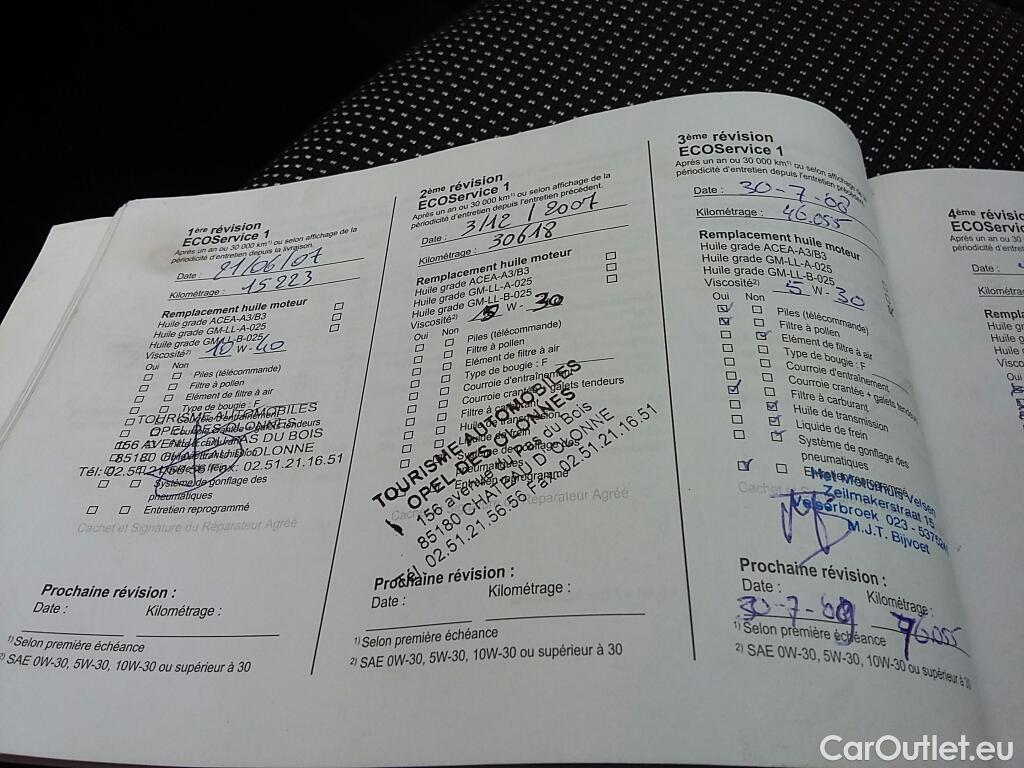 1ère révision
ECOService 1
Après un an ou 30 000 km¹⁾ ou selon affichage de la
périodicité d'entretien depuis la livraison.
Date : 21/06/07
Kilométrage : 15223
Remplacement huile moteur
Huile grade ACEA-A3/B3
Huile grade GM-LL-A-025
Huile grade GM-LL-B-025
Viscosité²⁾ 10 W - 40
Oui Non
Piles (télécommande)
Filtre à pollen
Elément de filtre à air
Type de bougie : F
TOURISME AUTOMOBILES
OPEL DES OLONNES
156 AVENUE DU PAS DU BOIS
85180 D'OLONNE
Tél: 02.51.21.56.56 Fax: 02.51.21.16.51
Système de gonflage des
pneumatiques
Entretien reprogrammé
Cachet et Signature du Réparateur Agréé
Prochaine révision :
Date : Kilométrage :
¹⁾ Selon première échéance
²⁾ SAE 0W-30, 5W-30, 10W-30 ou supérieur à 30
2ème révision
ECOService 1
Après un an ou 30 000 km¹⁾ ou selon affichage de la
périodicité d'entretien depuis l'entretien précédent.
Date : 3/12/2007
Kilométrage : 30618
Remplacement huile moteur
Huile grade ACEA-A3/B3
Huile grade GM-LL-A-025
Huile grade GM-LL-B-025
Viscosité²⁾ 5 W - 30
Oui Non
Piles (télécommande)
Filtre à pollen
Elément de filtre à air
Type de bougie : F
Courroie d'entraînement
Courroie crantée + galets tendeurs
Filtre à carburant
Huile de transmission
Liquide de frein
Système de gonflage des
pneumatiques
Entretien reprogrammé
TOURISME AUTOMOBILES
OPEL DES OLONNES
156 avenue du Pas du Bois
85180 CHATEAU D'OLONNE
Tél. 02.51.21.56.56 Fax. 02.51.21.16.51
Réparateur Agréé
Prochaine révision :
Date : Kilométrage :
¹⁾ Selon première échéance
²⁾ SAE 0W-30, 5W-30, 10W-30 ou supérieur à 30
3ème révision
ECOService 1
Après un an ou 30 000 km¹⁾ ou selon affichage de la
périodicité d'entretien depuis l'entretien précédent.
Date : 30-7-08
Kilométrage : 46.055
Remplacement huile moteur
Huile grade ACEA-A3/B3
Huile grade GM-LL-A-025
Huile grade GM-LL-B-025
Viscosité²⁾ 5 W - 30
Oui Non
Piles (télécommande)
Filtre à pollen
Elément de filtre à air
Type de bougie : F
Courroie d'entraînement
Courroie crantée + galets tendeurs
Filtre à carburant
Huile de transmission
Liquide de frein
Système de gonflage des
pneumatiques
Het Motorhuis Velsen
Zeilmakerstraat 15
Velserbroek 023 -
M.J.T. Bijvoet
Prochaine révision :
Date : Kilométrage :
30-7-09 76.055
¹⁾ Selon première échéance
²⁾ SAE 0W-30, 5W-30, 10W-30 ou supérieur à 30
4ème
ECOServic
Après un an ou 30
périodicité d'ent
Date :
Kilométra
CarOutlet.eu